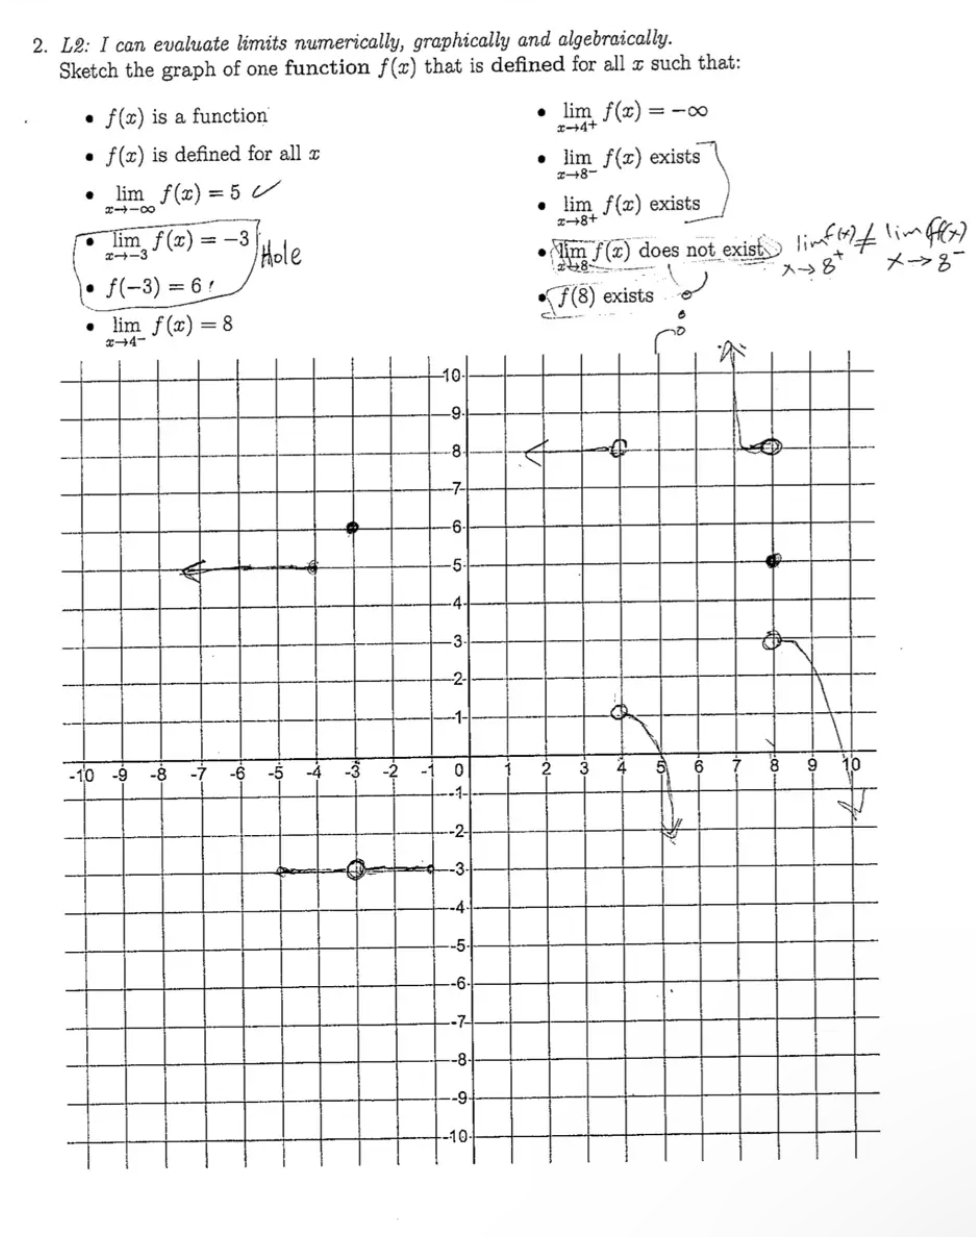 2. L2: I can evaluate limits numerically, graphically and algebraically.
Sketch the graph of one function f(x) that is defined for all x such that:
• f(x) is a function
• f(x) is defined for all x
• lim f(x) = 5 ✓
x→−∞
• lim f(x) = −3
x→−3
Hole
• f(−3) = 6
• lim f(x) = 8
x→4−
• lim f(x) = −∞
x→4+
• lim f(x) exists
x→8−
• lim f(x) exists
x→8+
• lim f(x) does not exist
x→8
lim f(x) ≠ lim f(x)
x→8+ x→8−
• f(8) exists
10
9
8
7
6
5
4
3
2
1
-10 -9 -8 -7 -6 -5 -4 -3 -2 -1 0 1 2 3 4 5 6 7 8 9 10
-1
-2
-3
-4
-5
-6
-7
-8
-9
-10